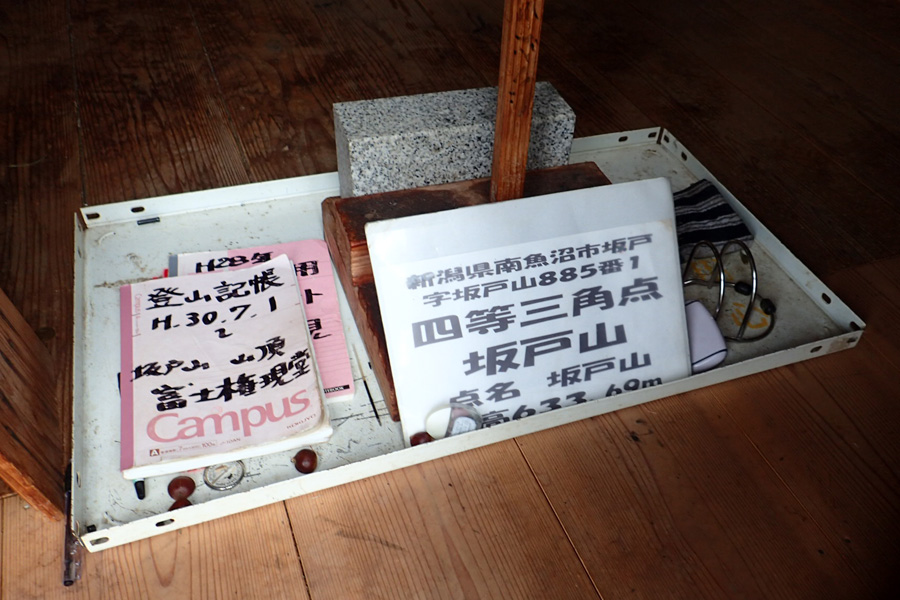 登山記帳
H.30.7.1
～
坂戸山 山頂
富士権現堂
Campus
H28年
用
ト
見
新潟県南魚沼市坂戸
字坂戸山885番1
四等三角点
坂戸山
点名 坂戸山
高633.69m